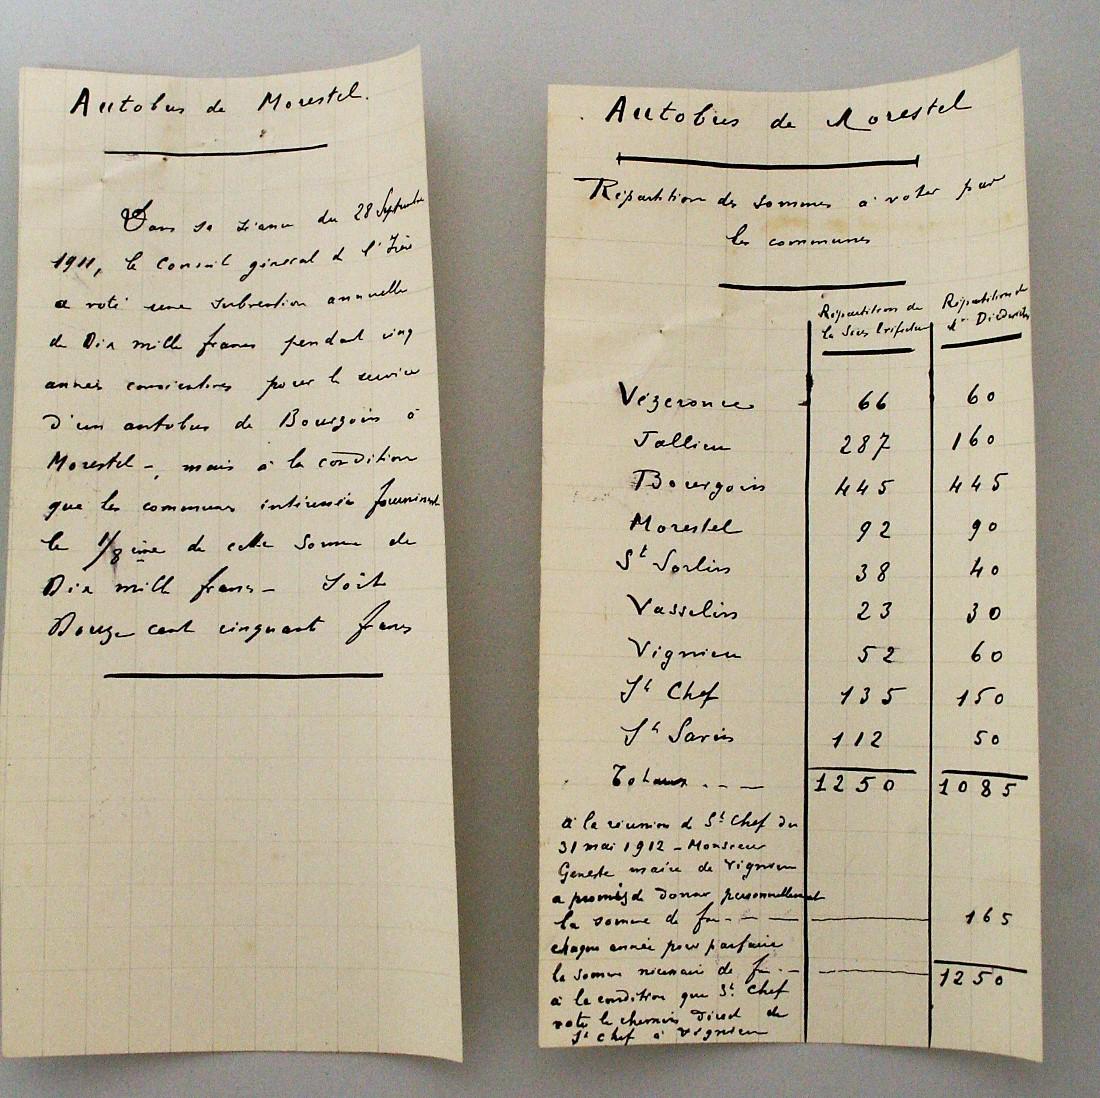 Autobus de Morestel.
Dans sa séance du 28 Septembre
1911, le Conseil général de l'Isère
a voté une subvention annuelle
de Dix mille francs pendant cinq
années consécutives pour le service
d'un autobus de Bourgoin à
Morestel -, mais à la condition
que les communes intéressées fournissent
le 1/8 ème de cette somme de
Dix mille francs - Soit
Douze cent cinquante francs
Autobus de Morestel
Répartition des sommes à voter par
les communes
Répartition de la Sous Préfecture
Répartition de
Vézeronce 66 60
Jallieu 287 160
Bourgoin 445 445
Morestel 92 90
St Sorlin 38 40
Vasselin 23 30
Vignieu 52 60
St Chef 135 150
St Savin 112 50
Totaux . - - 1250 1085
à la réunion de St Chef du
31 mai 1912 - Monsieur
Geneste maire de Vignieu
a promis de donner personnellement
la somme de fr - - - 165
chaque année pour parfaire
la somme nécessaire de fr. - - 1250
à la condition que St. Chef
vote le chemin direct de
St Chef à Vignieu